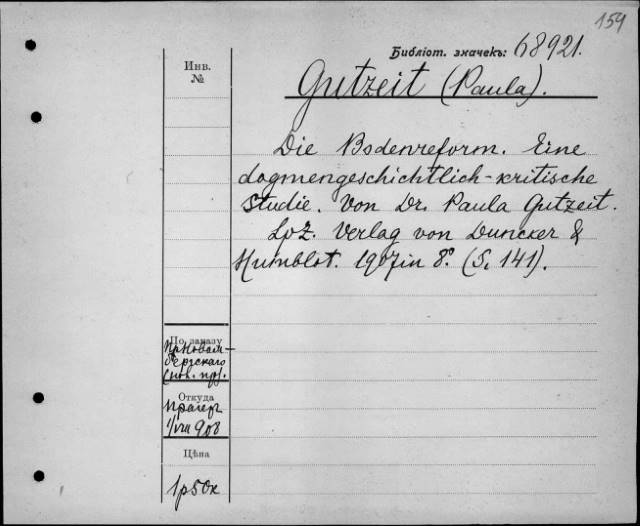 159
Библіот. значекъ: 68921.
Инв.
№
Gutzeit (Paula).
Die Bodenreform. Eine
dogmengeschichtlich-kritische
Studie. Von Dr. Paula Gutzeit.
Lpz. Verlag von Duncker &
Humblot. 1907 in 8°. (S. 141).
По заказу
Пр. Новом-
бергскаго
(нов. пр).
Откуда
Прагеръ
1/VIII 908
Цѣна
1р50к